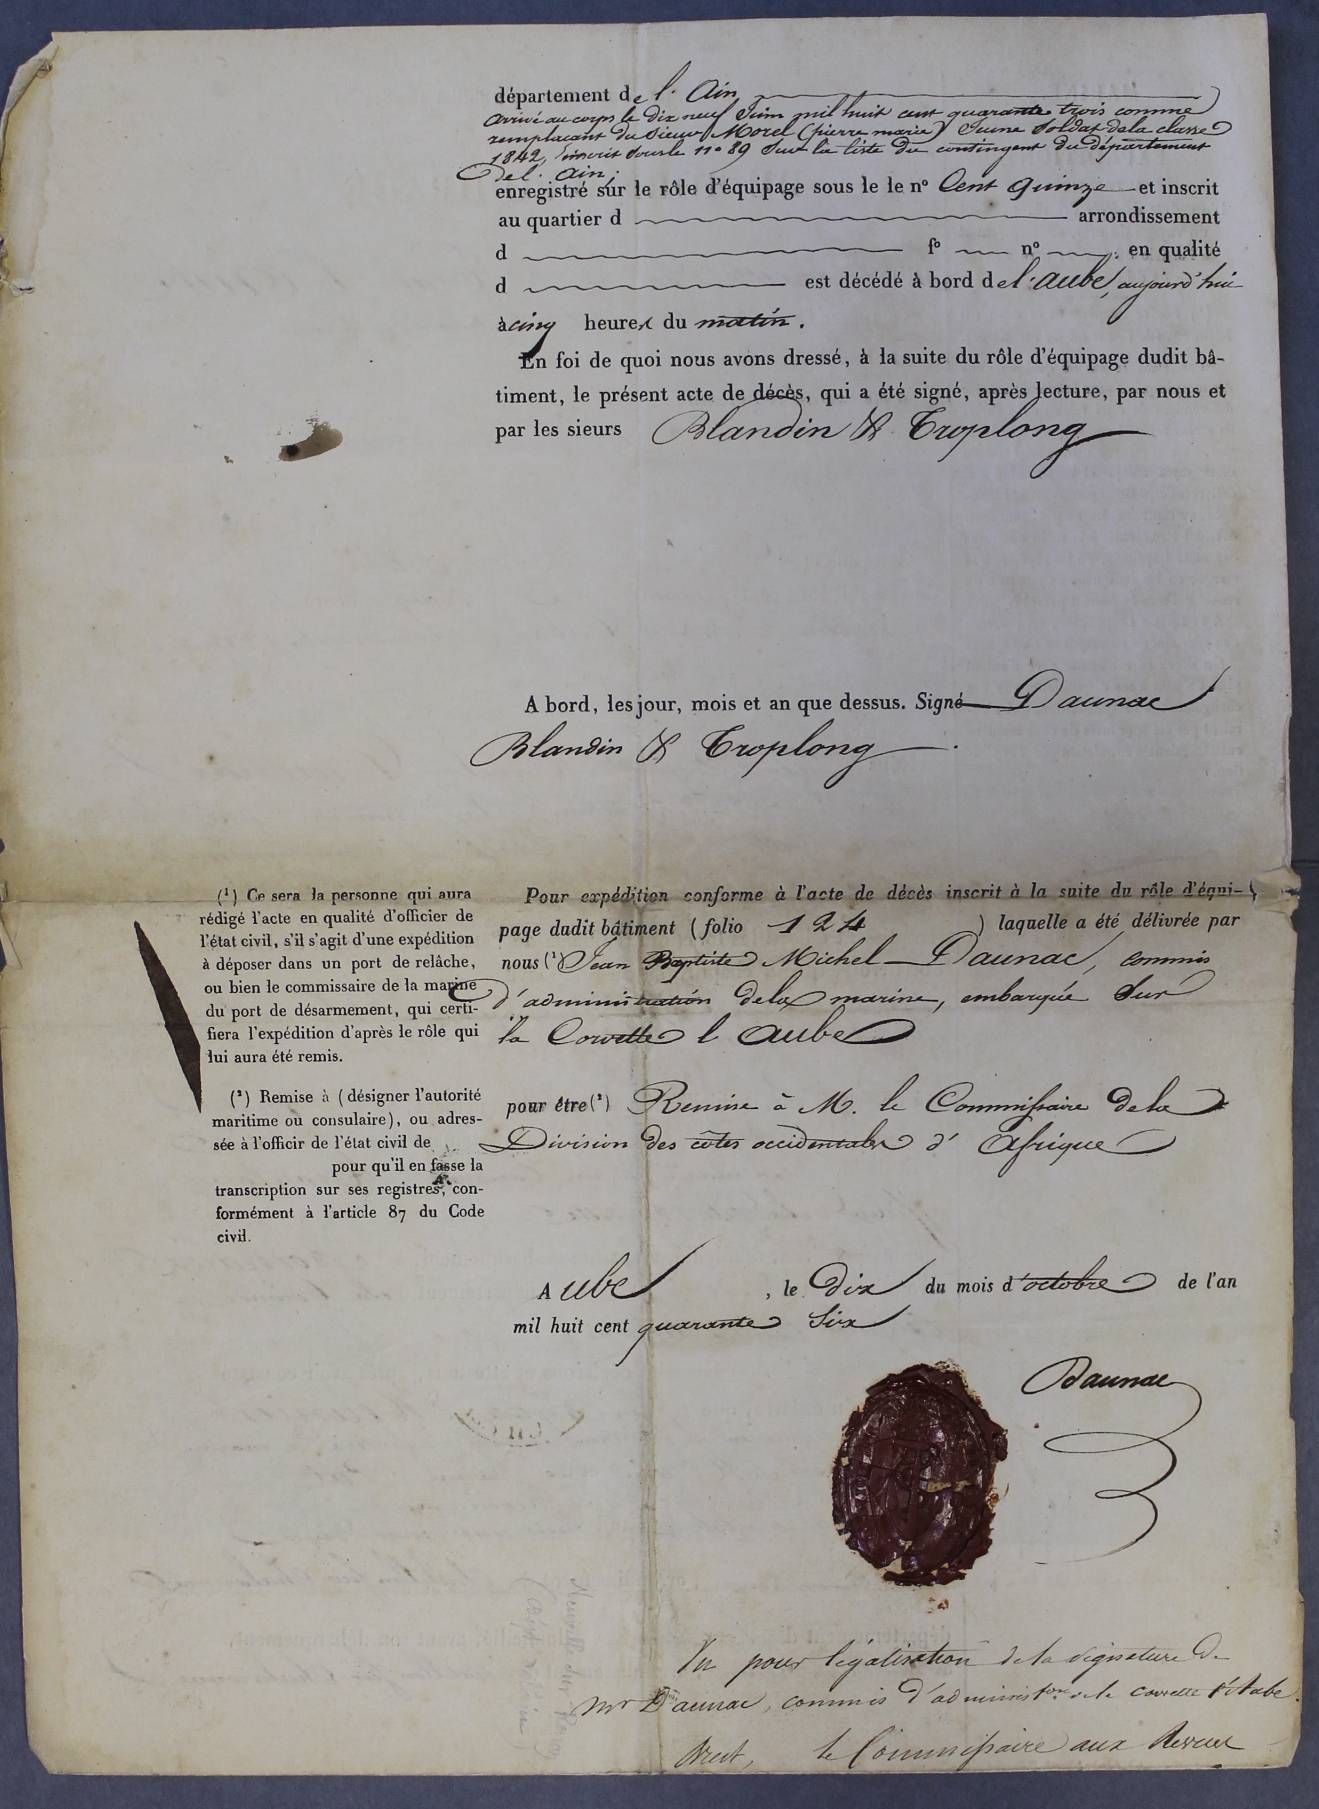 département de l'Ain
arrivé au corps le dix neuf Juin mil huit cent quarante trois comme
remplaçant du Sieur Morel (pierre marie) Jeune Soldat de la classe
1842, inscrit sous le nº 89 Sur la liste du contingent du département
de l'Ain;
enregistré sur le rôle d'équipage sous le le nº Cent quinze et inscrit
au quartier d arrondissement
d fº nº , en qualité
d est décédé à bord de l'Aube, aujourd'hui
à cinq heures du matin.
En foi de quoi nous avons dressé, à la suite du rôle d'équipage dudit bâ-
timent, le présent acte de décès, qui a été signé, après lecture, par nous et
par les sieurs Blandin & Troplong
A bord, les jour, mois et an que dessus. Signé Daunac
Blandin & Troplong.
(¹) Ce sera la personne qui aura
rédigé l'acte en qualité d'officier de
l'état civil, s'il s'agit d'une expédition
à déposer dans un port de relâche,
ou bien le commissaire de la marine
du port de désarmement, qui certi-
fiera l'expédition d'après le rôle qui
lui aura été remis.
(²) Remise à (désigner l'autorité
maritime ou consulaire), ou adres-
sée à l'officir de l'état civil de
pour qu'il en fasse la
transcription sur ses registres, con-
formément à l'article 87 du Code
civil.
Pour expédition conforme à l'acte de décès inscrit à la suite du rôle d'équi-
page dudit bâtiment (folio 124 ) laquelle a été délivrée par
nous (¹) Jean Baptiste Michel Daunac, commis
d'administration de la marine, embarquée Sur
la Corvette l'Aube
pour être (²) Remise à M. le Commissaire de la
Division des côtes occidentales d'Afrique
A ube , le Dix du mois d'octobre de l'an
mil huit cent quarante Six
Daunac
Vu pour légalisation de la signature de
Mr Daunac, commis d'administon de la corvette l'Aube.
Brest, le Commissaire aux Revues